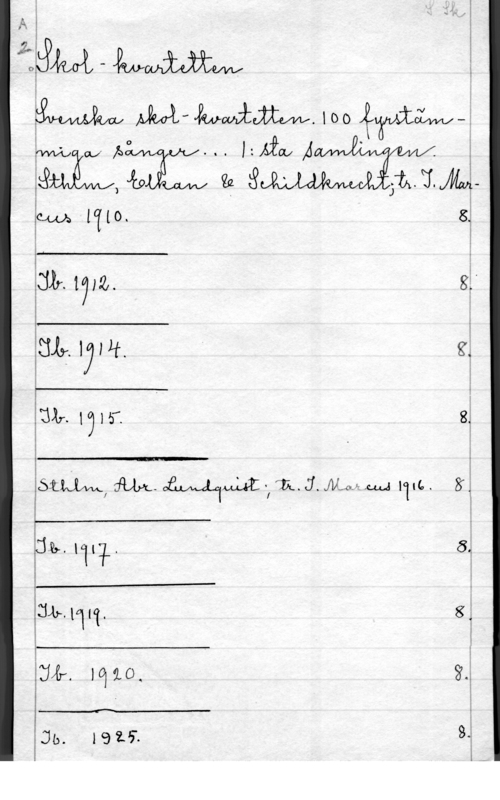 S Sk
A
2.
Skol-kvartetten
Svenska skol-kvartetten. 100 fyrstäm-
miga sånger... 1:sta samlingen.
Sthlm, Elkan & Schildknecht; tr. J. Mar-
cus 1910. 8.
Ib. 1912. 8.
Ib. 1914. 8.
Ib. 1915. 8.
Sthlm, Abr. Lundquist; tr. J. Marcus 1916. 8.
Ib. 1917. 8.
Ib. 1919. 8.
Ib. 1920. 8.
Ib. 1925. 8.